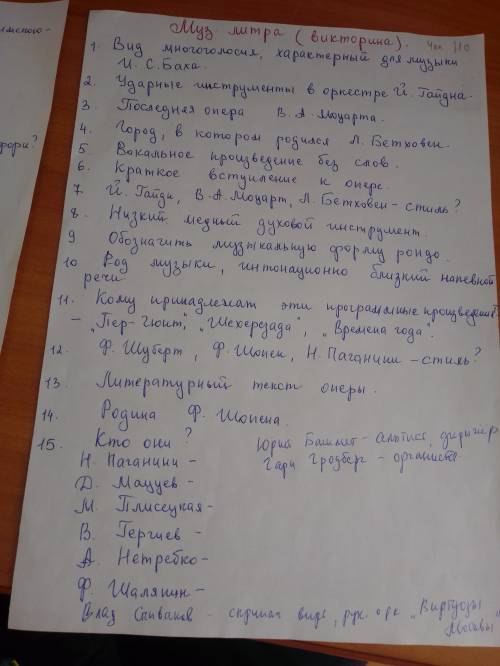 Муз литра (викторина).
1. Вид многоголосия, характерный для музыки
И. С. Баха.
2. Ударные инструменты в оркестре Й. Гайдна.
3. Последняя опера В. А. Моцарта.
4. Город, в котором родился Л. Бетховен.
5. Вокальное произведение без слов.
6. Краткое вступление к опере.
7. Й. Гайдн, В. А. Моцарт, Л. Бетховен - стиль?
8. Низкий медный духовой инструмент.
9. Обозначить музыкальную форму рондо.
10. Род музыки, интонационно близкий напевной
речи
11. Кому принадлежат эти программные произведения
- "Пер-Гюнт", "Шехерезада", "Времена года".
12. Ф. Шуберт, Ф. Шопен, Н. Паганини - стиль?
13. Литературный текст оперы.
14. Родина Ф. Шопена.
15. Кто они? Юрий Башмет - альтист, дирижер
Н. Паганини - Гари Гродберг - органист
Д. Мацуев -
М. Плисецкая -
В. Гергиев -
А. Нетребко -
Ф. Шаляпин -
Влад Спиваков - скрипач, рук. орк "Виртуозы
Москвы"